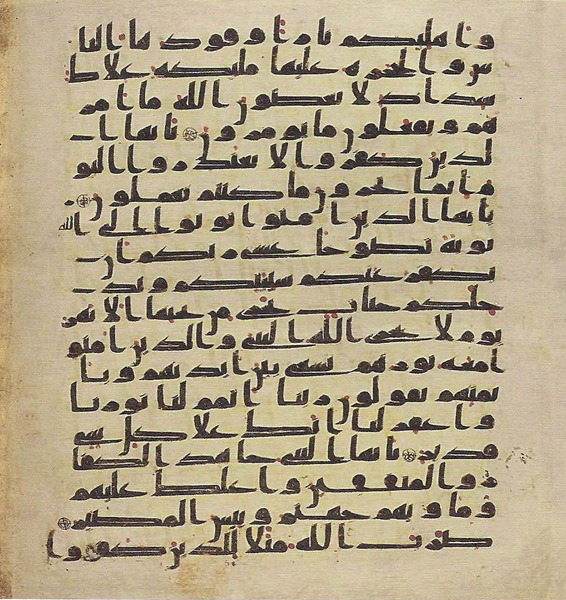 واهليكم نارا وقودها النا
س والحجرة عليها ملئكة غلاظ
شداد لا يعصون الله ما امر
هم ويفعلون ما يؤمرون يايها ا
لذين كفروا لا تعتذروا اليو
م انما تجزون ما كنتم تعملون
يايها الذين امنوا توبوا الى الله
توبة نصوحا عسى ربكم ان
يكفر عنكم سيتكم ويد
خلكم جنات تجري من تحتها الانهر
يوم لا يخزي الله النبي والذين امنو
ا معه نورهم يسعى بين ايديهم وبا
يمنهم يقولون ربنا اتمم لنا نورنا
واغفر لنا انك علا كل شي
قدير يايها النبي جاهد الكفا
ر والمنفقين واغلظ عليهم
وماويهم جهنم وبيس المصير
ضرب الله مثلا للذين كفروا